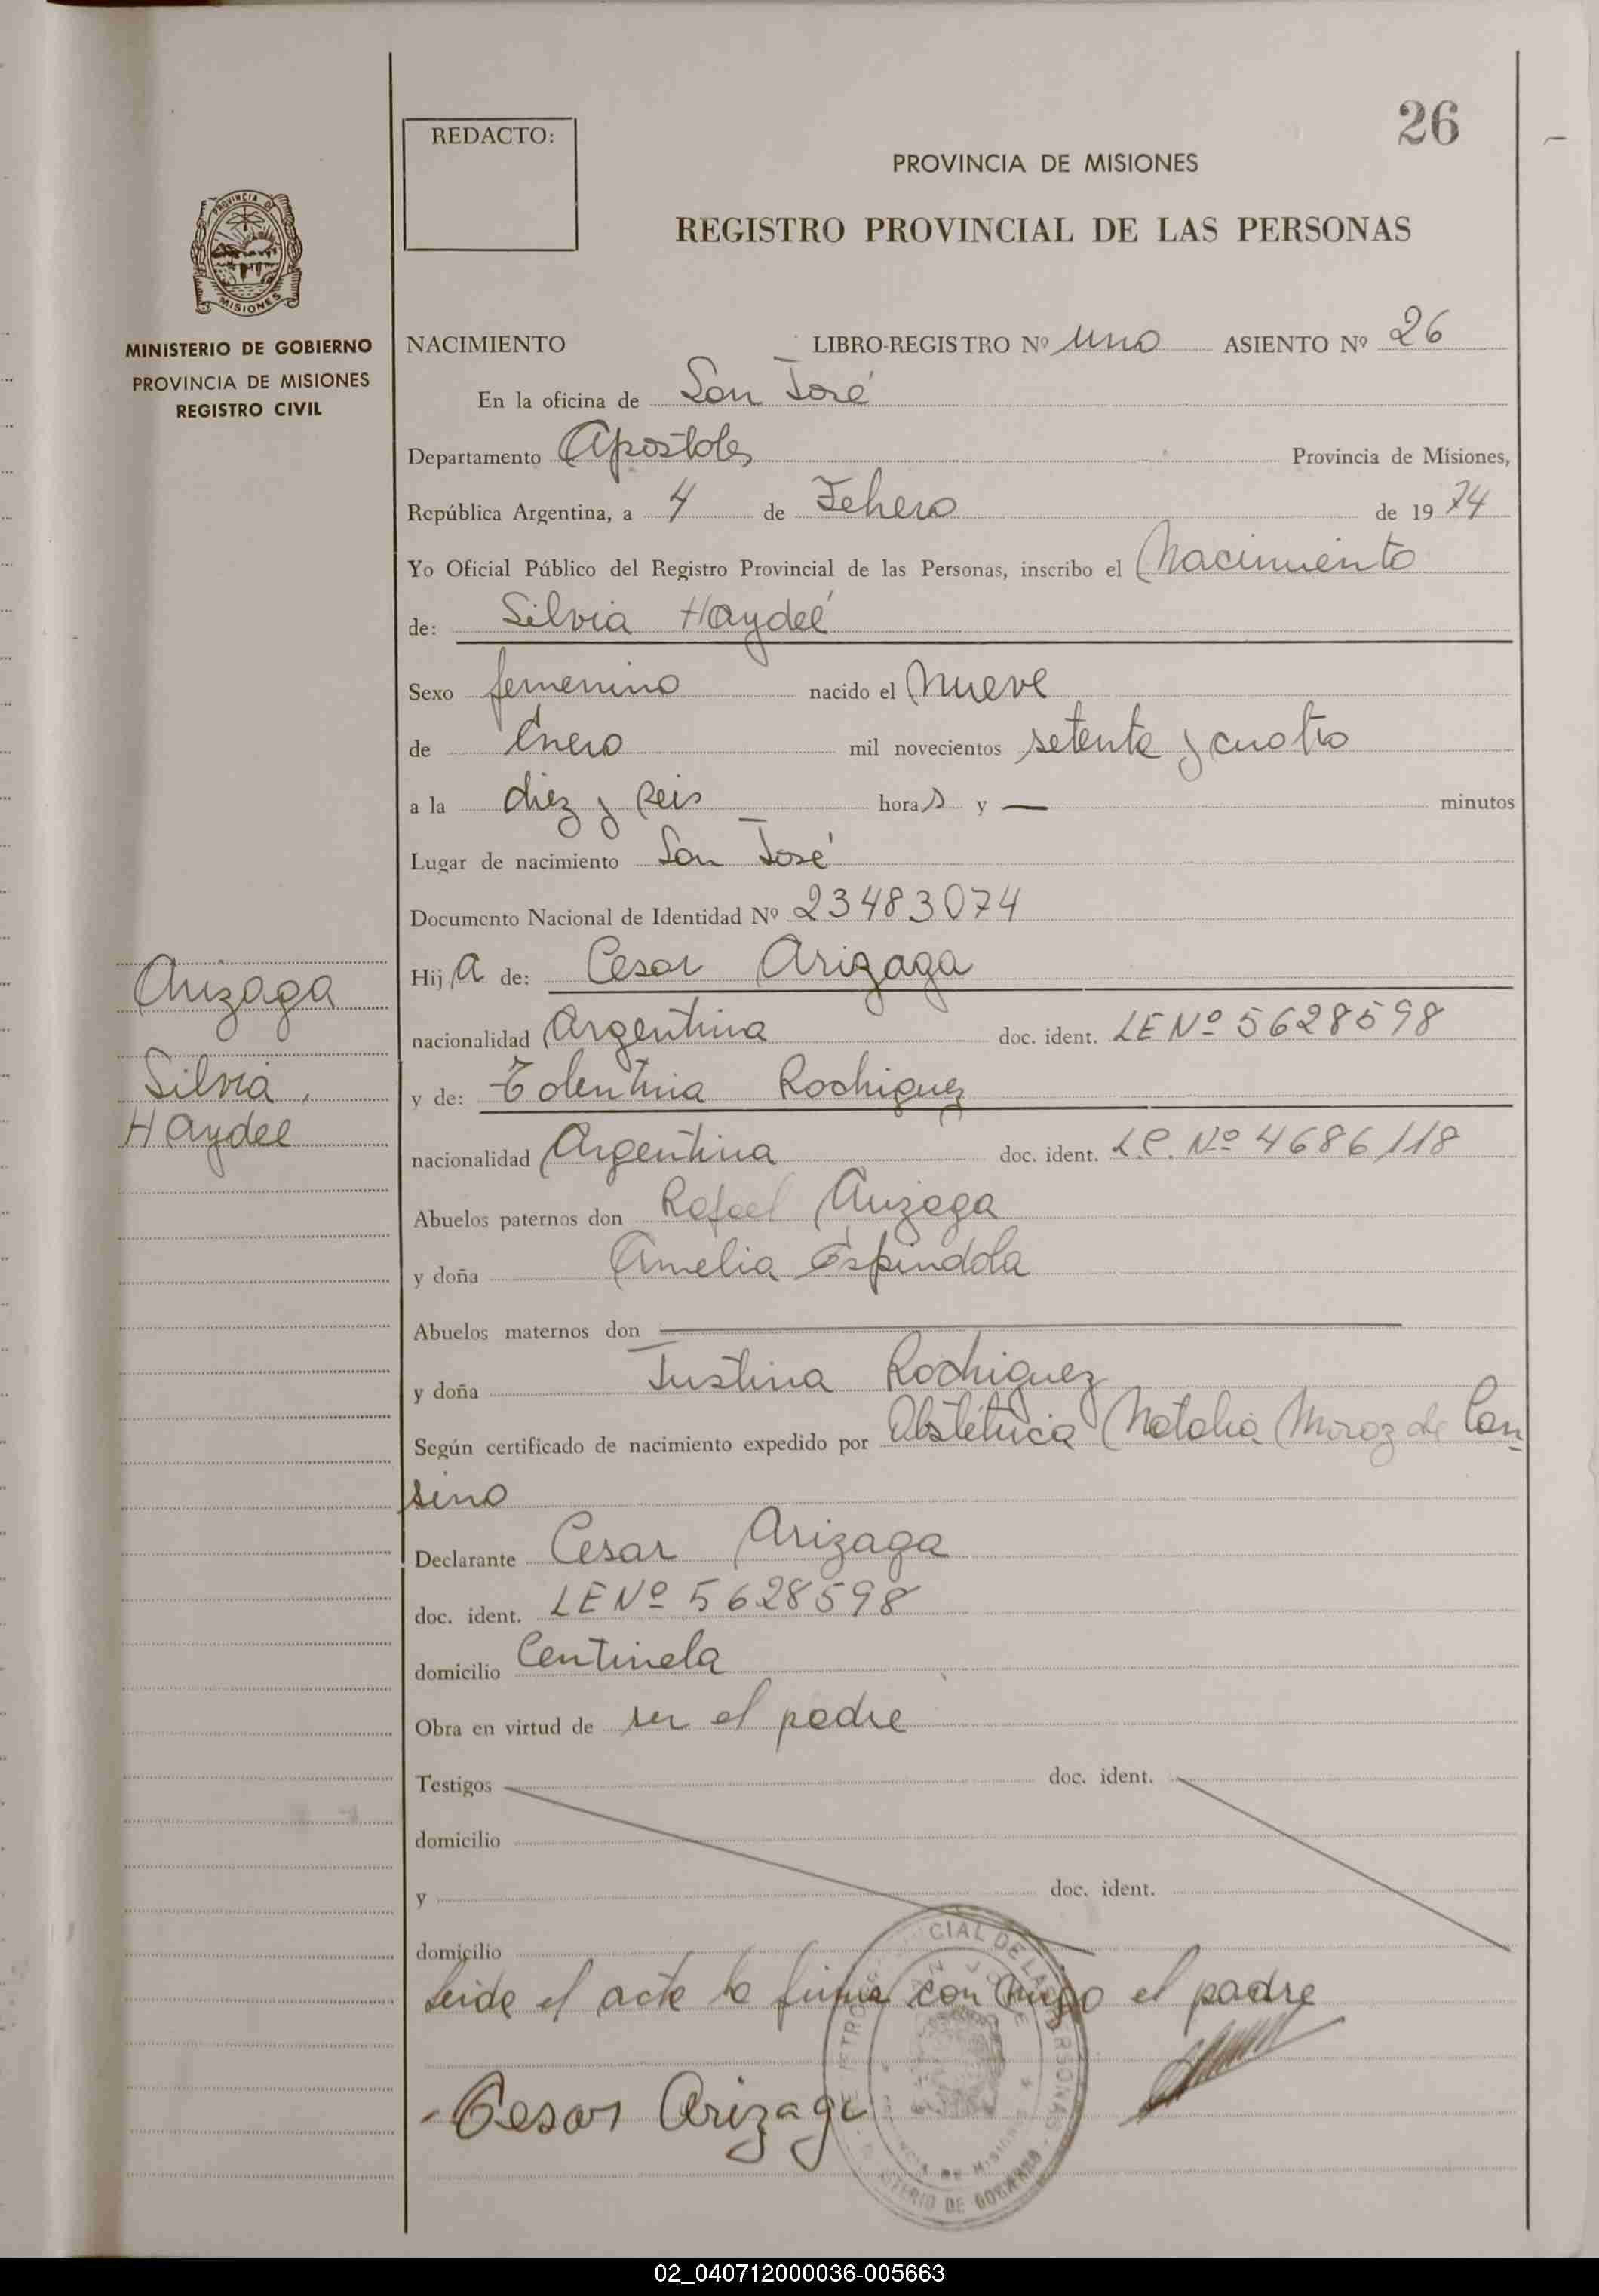 26
REDACTO:
PROVINCIA DE MISIONES
REGISTRO PROVINCIAL DE LAS PERSONAS
PROVINCIA DE
MISIONES
MINISTERIO DE GOBIERNO
PROVINCIA DE MISIONES
REGISTRO CIVIL
NACIMIENTO LIBRO-REGISTRO Nº uno ASIENTO Nº 26
En la oficina de San José
Departamento Apostoles Provincia de Misiones,
República Argentina, a 4 de Febrero de 1974
Yo Oficial Público del Registro Provincial de las Personas, inscribo el Nacimiento
de: Silvia Haydeé
Sexo femenino nacido el nueve
de Enero mil novecientos setenta y cuatro
a la diez y seis horas y — minutos
Lugar de nacimiento San José
Documento Nacional de Identidad Nº 23483074
Hija de: Cesar Arizaga
nacionalidad Argentina doc. ident. LE Nº 5628598
y de: Tolentina Rodriguez
nacionalidad Argentina doc. ident. L.C. Nº 4686118
Arizaga
Silvia
Haydee
Abuelos paternos don Rafael Arizaga
y doña Amelia Espindola
Abuelos maternos don
y doña Justina Rodriguez
Según certificado de nacimiento expedido por Obstétrica Natalia Moroz de Can-
sino
Declarante Cesar Arizaga
doc. ident. LE Nº 5628598
domicilio Centinela
Obra en virtud de ser el padre
Testigos doc. ident.
domicilio
y doc. ident.
domicilio
Leida el acta la firma conmigo el padre
Cesar Arizaga
02_040712000036-005663